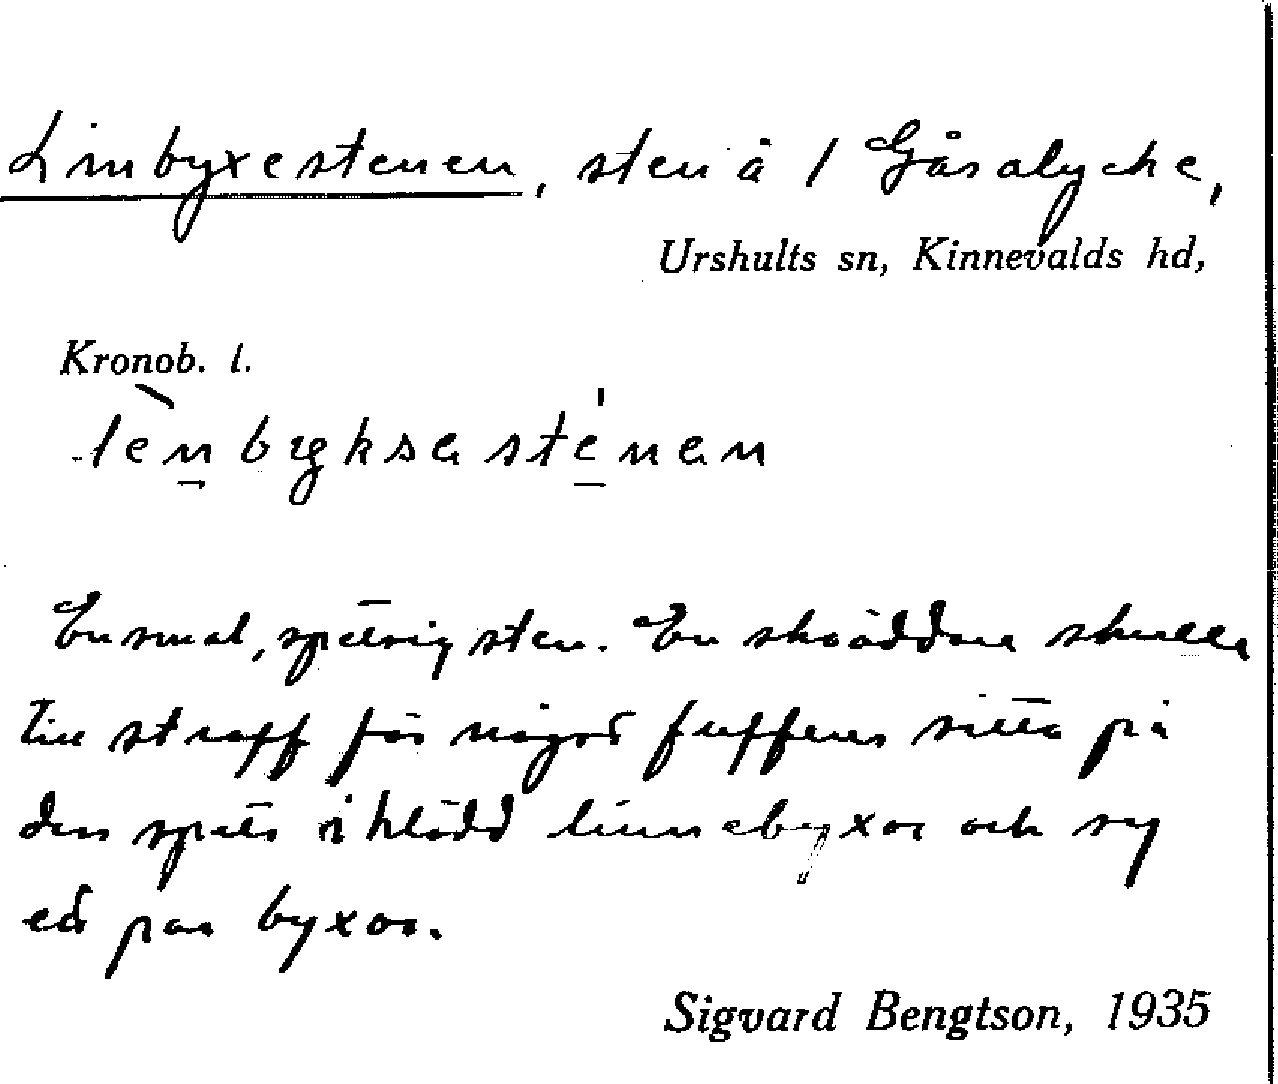 Linbyxestenen, sten å 1 Gåsalycke,
Urshults sn, Kinnevalds hd,
Kronob. l.
En smal, spetsig sten. En skräddare skulle
till straff för något fuffens sitta på
dess spets iklädd linnebyxor och sy
ett par byxor.
Sigvard Bengtson, 1935